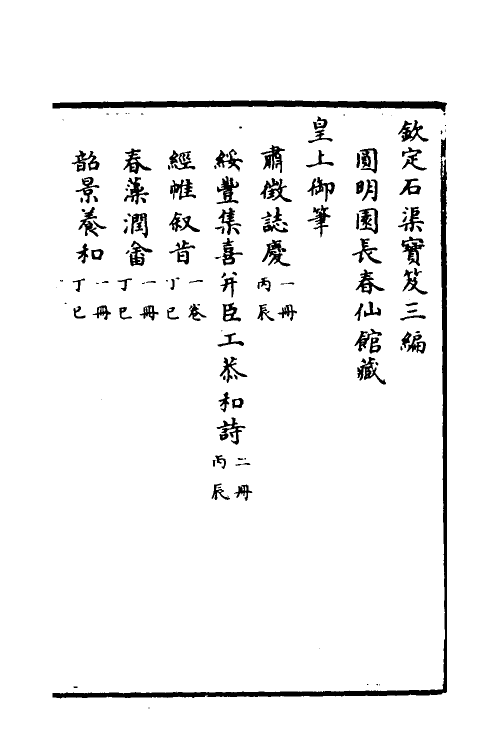 欽定石渠寶笈三編
圓明園長春仙館藏
皇上御筆
肅徵誌慶一冊丙辰
綏豐集喜并臣工恭和詩二冊丙辰
經帷叙旨一卷丁巳
春藻潤畬一冊丁巳
韶景養和一冊丁巳